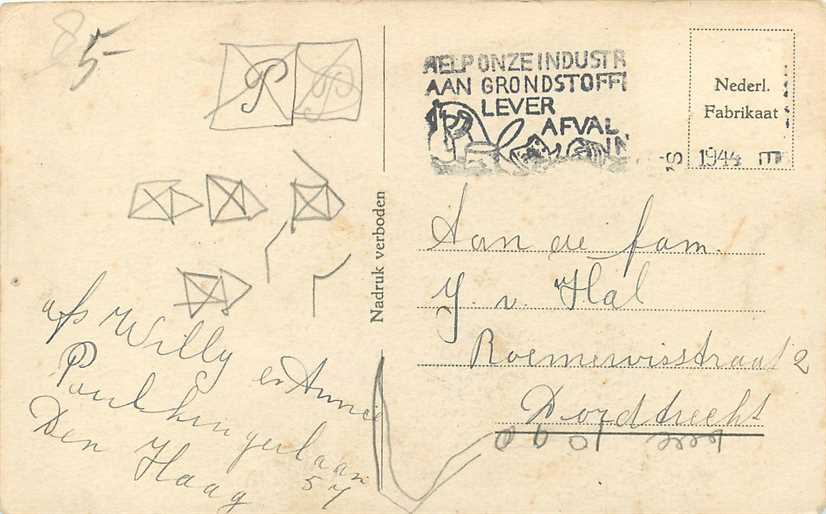 85-
P P
HELP ONZE INDUSTR
AAN GRONDSTOFF
LEVER
AFVAL
IN
Nederl.
Fabrikaat
1944
Nadruk verboden
Aan de fam.
J. v. Hal
Roemervisstraat 2
Dordtrecht
afs Willy en Annie
Den Haag
57